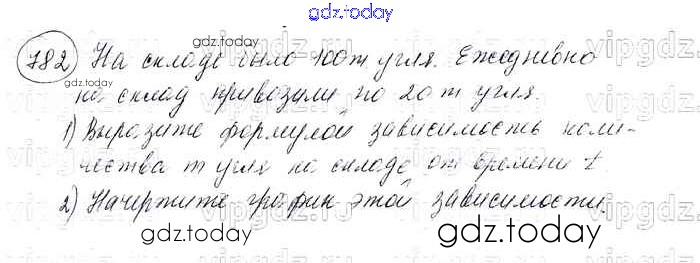 gdz.today
782) На складе было 100 т угля. Ежедневно
gdz.today
на склад привозили по 20 т угля.
1) Выразите формулой зависимость коли-
чества m угля на складе от времени t.
2) Начертите график этой зависимости.
gdz.today gdz.today